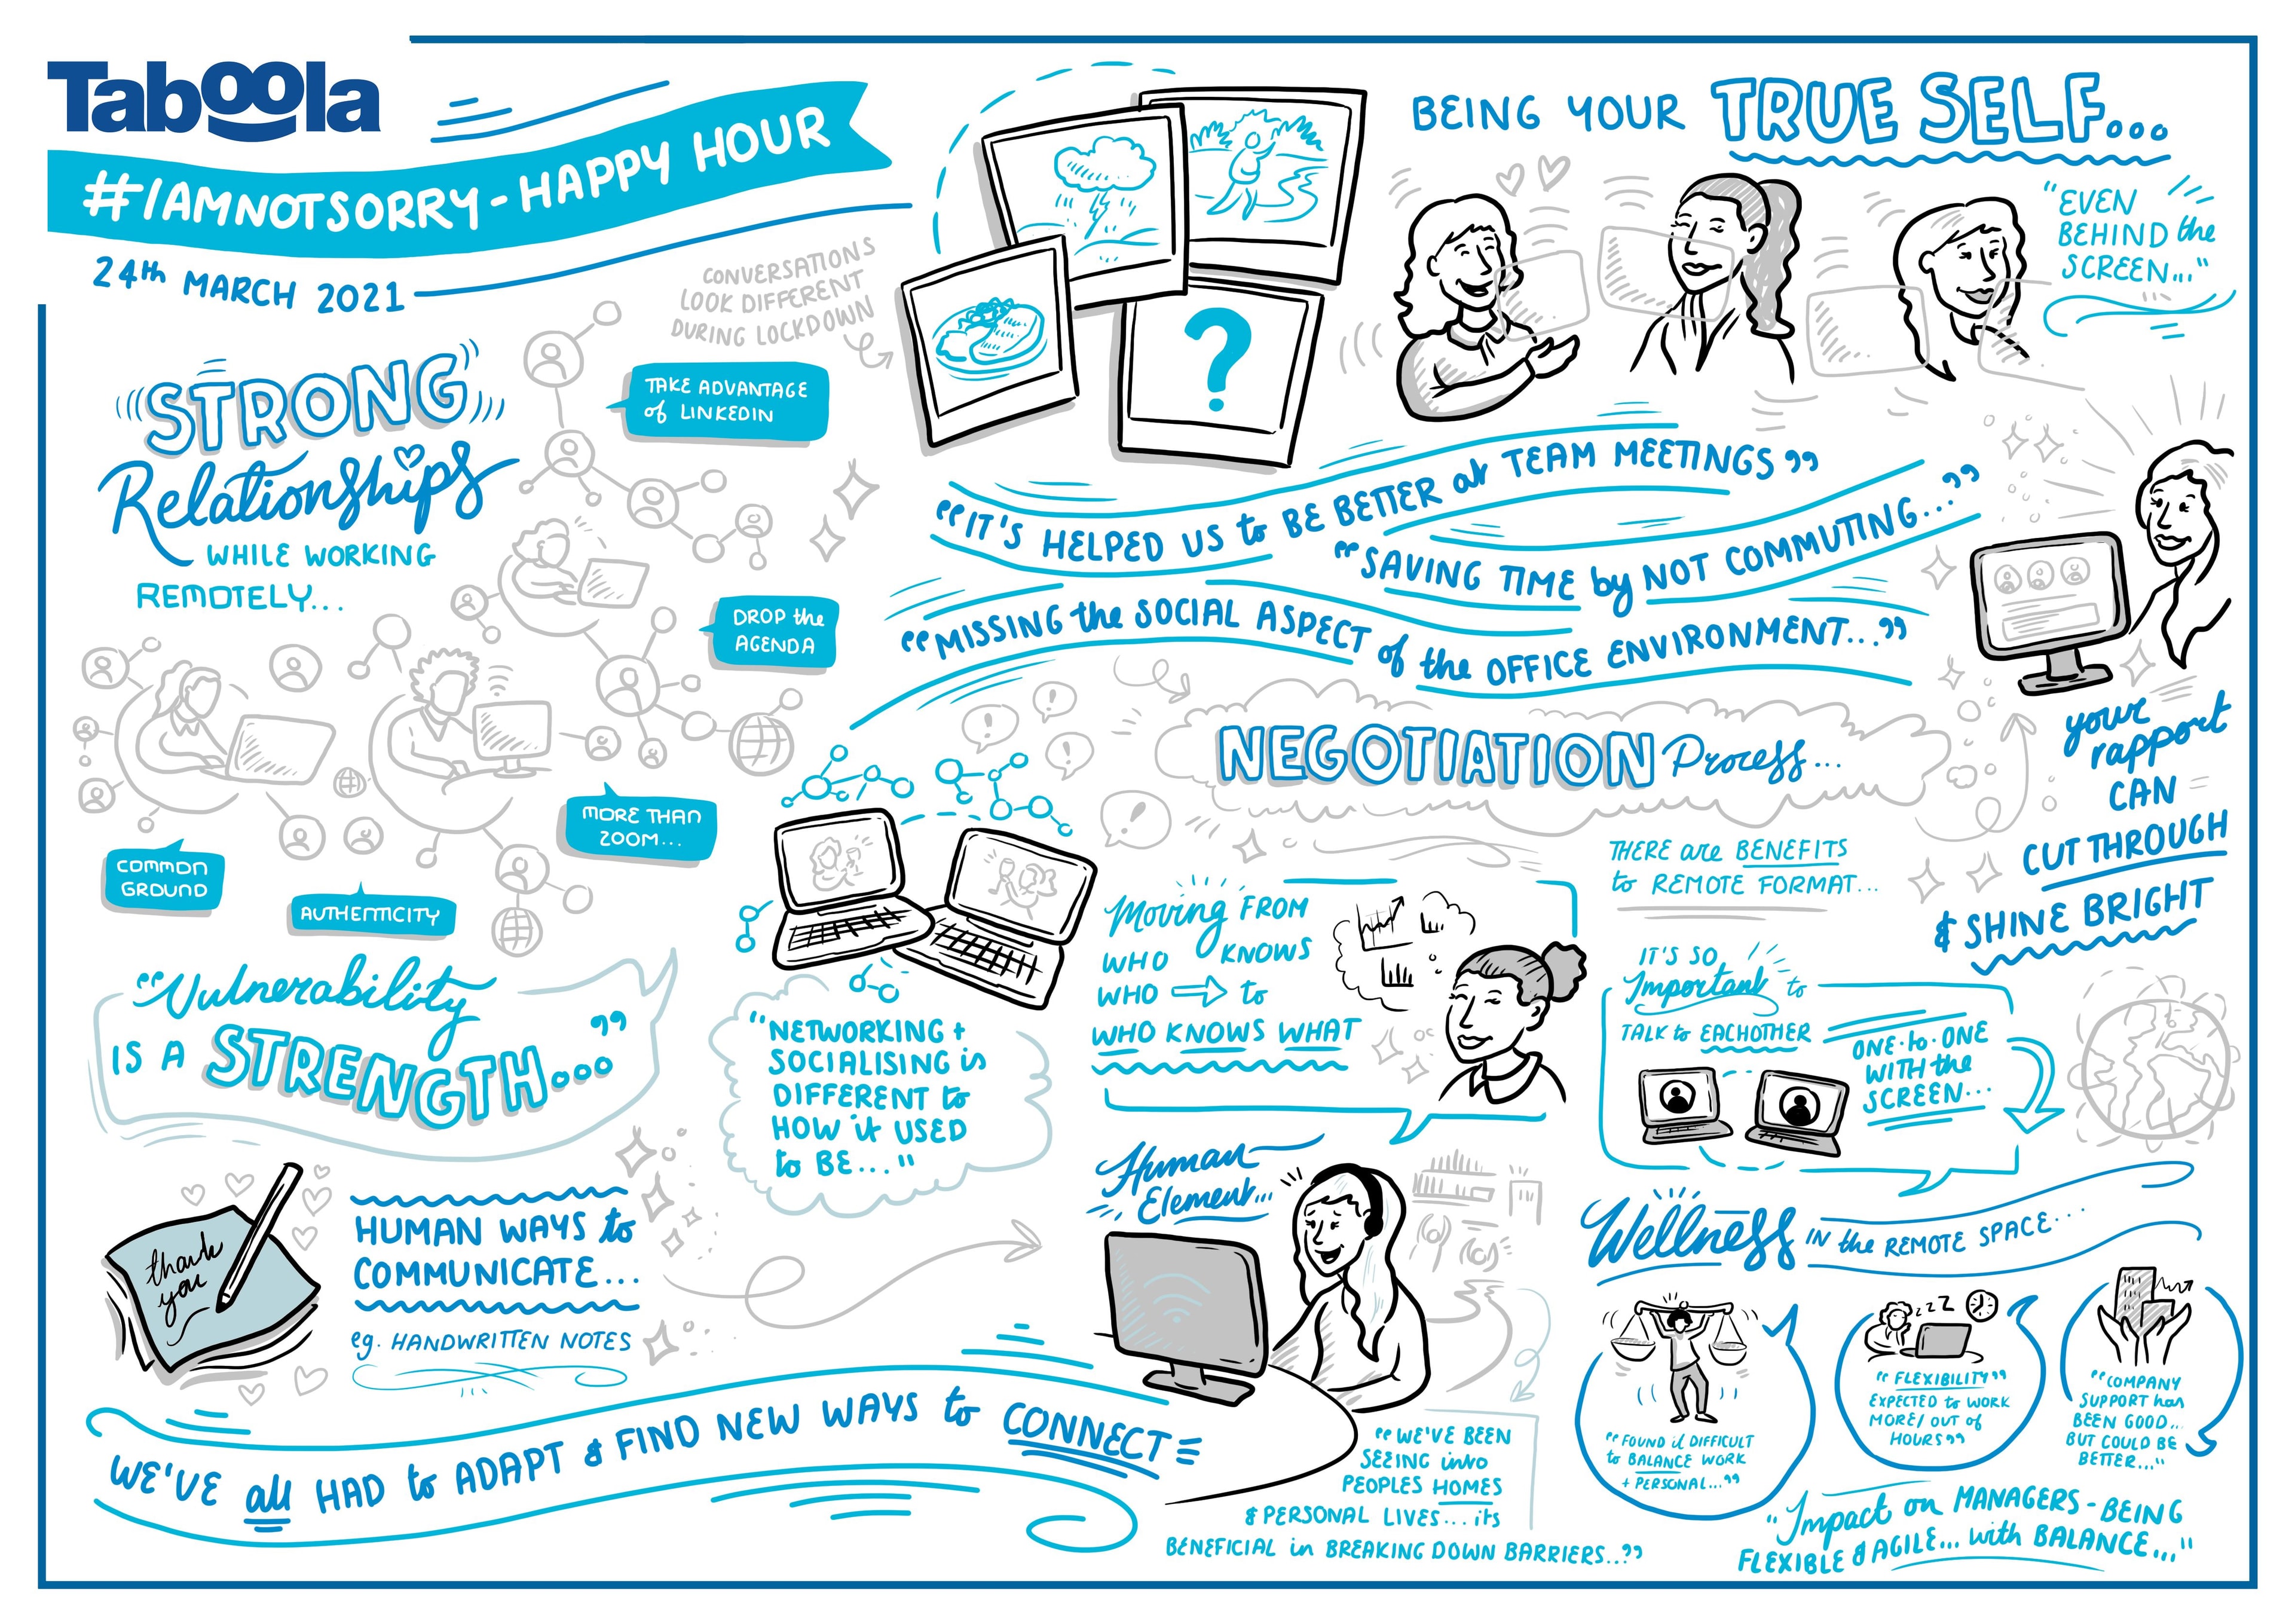 Taboola
#IAMNOTSORRY - HAPPY HOUR
24th MARCH 2021
CONVERSATIONS
LOOK DIFFERENT
DURING LOCKDOWN
?
BEING YOUR TRUE SELF...
"EVEN
BEHIND the
SCREEN..."
STRONG
Relationships
WHILE WORKING
REMOTELY...
TAKE ADVANTAGE
of LINKEDIN
DROP the
AGENDA
MORE THAN
ZOOM...
COMMON
GROUND
AUTHENTICITY
"IT'S HELPED US to BE BETTER at TEAM MEETINGS"
"SAVING TIME by NOT COMMUTING..."
"MISSING the SOCIAL ASPECT of the OFFICE ENVIRONMENT..."
your
rapport
CAN
CUT THROUGH
& SHINE BRIGHT
"Vulnerability
IS A STRENGTH..."
thank
you
HUMAN WAYS to
COMMUNICATE...
eg. HANDWRITTEN NOTES
"NETWORKING +
SOCIALISING is
DIFFERENT to
HOW it USED
to BE..."
NEGOTIATION Process...
!
!
!
!
Moving FROM
WHO KNOWS
WHO ⇒ to
WHO KNOWS WHAT
THERE are BENEFITS
to REMOTE FORMAT...
IT'S SO
Important to
TALK to EACHOTHER
ONE-to-ONE
WITH the
SCREEN...
Human
Element...
"WE'VE BEEN
SEEING into
PEOPLES HOMES
& PERSONAL LIVES... its
BENEFICIAL in BREAKING DOWN BARRIERS..."
Wellness IN the REMOTE SPACE...
"FOUND it DIFFICULT
to BALANCE WORK
+ PERSONAL..."
zzZ
"FLEXIBILITY"
EXPECTED to WORK
MORE/ OUT of
HOURS"
"COMPANY
SUPPORT has
BEEN GOOD...
BUT COULD BE
BETTER..."
"Impact on MANAGERS - BEING
FLEXIBLE & AGILE... with BALANCE..."
WE'VE all HAD to ADAPT & FIND NEW WAYS to CONNECT